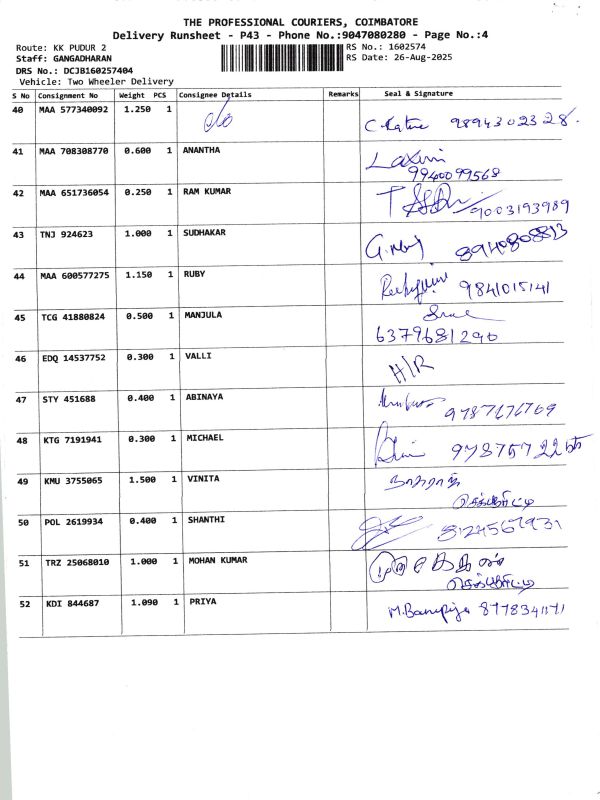 THE PROFESSIONAL COURIERS, COIMBATORE
Delivery Runsheet - P43 - Phone No.:9047080280 - Page No.:4
Route: KK PUDUR 2 RS No.: 1602574
Staff: GANGADHARAN RS Date: 26-Aug-2025
DRS No.: DCJB160257404
Vehicle: Two Wheeler Delivery
S No Consignment No Weight PCS Consignee Details Remarks Seal & Signature
40 MAA 577340092 1.250 1 9894302328
41 MAA 708308770 0.600 1 ANANTHA Laxmi
9940099568
42 MAA 651736054 0.250 1 RAM KUMAR 9003193989
43 TNJ 924623 1.000 1 SUDHAKAR 8940808813
44 MAA 600577275 1.150 1 RUBY 9841015141
45 TCG 41880824 0.500 1 MANJULA
6379681290
46 EDQ 14537752 0.300 1 VALLI H/R
47 STY 451688 0.400 1 ABINAYA
48 KTG 7191941 0.300 1 MICHAEL
49 KMU 3755065 1.500 1 VINITA நாகராஜ்
செக்யூரிட்டி
50 POL 2619934 0.400 1 SHANTHI
51 TRZ 25068010 1.000 1 MOHAN KUMAR
செக்யூரிட்டி
52 KDI 844687 1.090 1 PRIYA